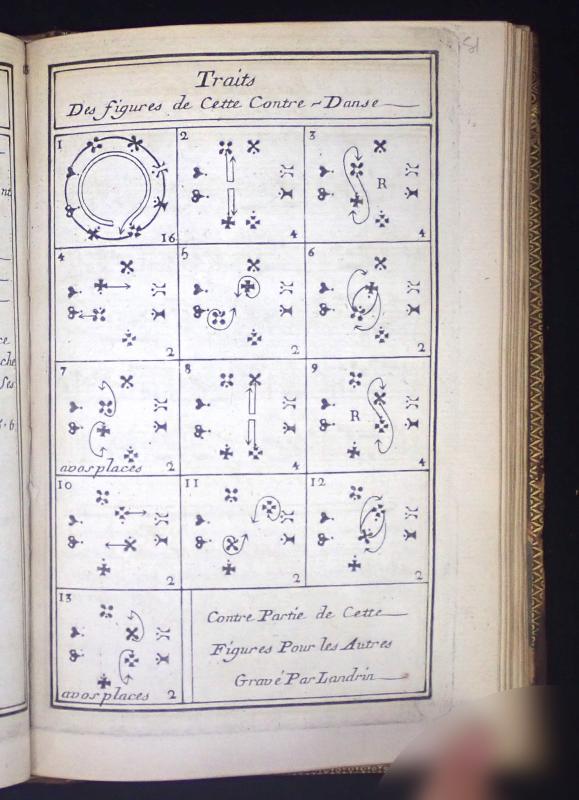 51
Traits
Des figures de Cette Contre-Danse
1
16
2
4
3
R
4
4
2
5
2
6
2
7
avosplaces 2
8
4
9
R
4
10
2
11
2
12
2
13
avosplaces 2
Contre Partie de Cette
Figures Pour les Autres
Gravé Par Landrin
nt
ce
che
ses